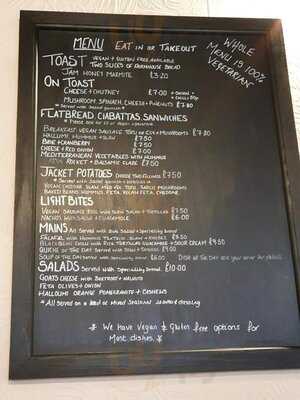 MENU EAT IN OR TAKEOUT
WHOLE MENU IS 100% VEGETARIAN
TOAST VEGAN + GLUTEN FREE AVAILABLE
TWO SLICES OF FARMHOUSE BREAD
JAM HONEY MARMITE £3.20
ON TOAST
CHEESE + CHUTNEY £7.00
MUSHROOM SPINACH, CHEESE + PINENUTS £7.80
FLATBREAD CIABATTAS SANWICHES
BREAKFAST VEGAN SAUSAGE TOFU OR EGG + MUSHROOMS £7.80
HALLUMI, HUMMUS + SLAW £7.50
BRIE + CRANBERRY £7.50
CHEESE + RED ONION £7.00
MEDITERRANEAN VEGETABLES WITH HUMMUS
ROCKET + BALSAMIC GLAZE £7.50
JACKET POTATOES CHOOSE TWO FILLINGS £7.50
VEGAN CHEDDAR SLAW MED VEG TOFU GARLIC MUSHROOMS
BAKED BEANS HUMMUS, FETA, VEGAN FETA, CHEDDAR
LIGHT BITES
VEGAN SAUSAGE ROLL WITH SLAW SALAD + TORTILLAS £7.50
NACHOS WITH SALSA + GUACAMOLE £6.00
MAINS All Served with Side Salad + Speciality Bread
FALAFEL WITH HUMMUS TORTILLA SLAW +
CHILLI WITH RICE TORTILLAS GUACAMOLE + SOUR CREAM £9.50
QUICHE OF THE DAY SERVED WITH SLAW +
SOUP OF THE DAY SERVED WITH Speciality bread £6.00
SALADS Served With Speciality bread £10.00
GOATS CHEESE WITH BEETROOT + WALNUTS
FETA OLIVES + ONION
HALLOUMI ORANGE POMEGRANATE + CASHEWS
* All served on a bed of Mixed Seasonal leaves + dressing
* We Have Vegan & Gluten free options for
Most dishes. *